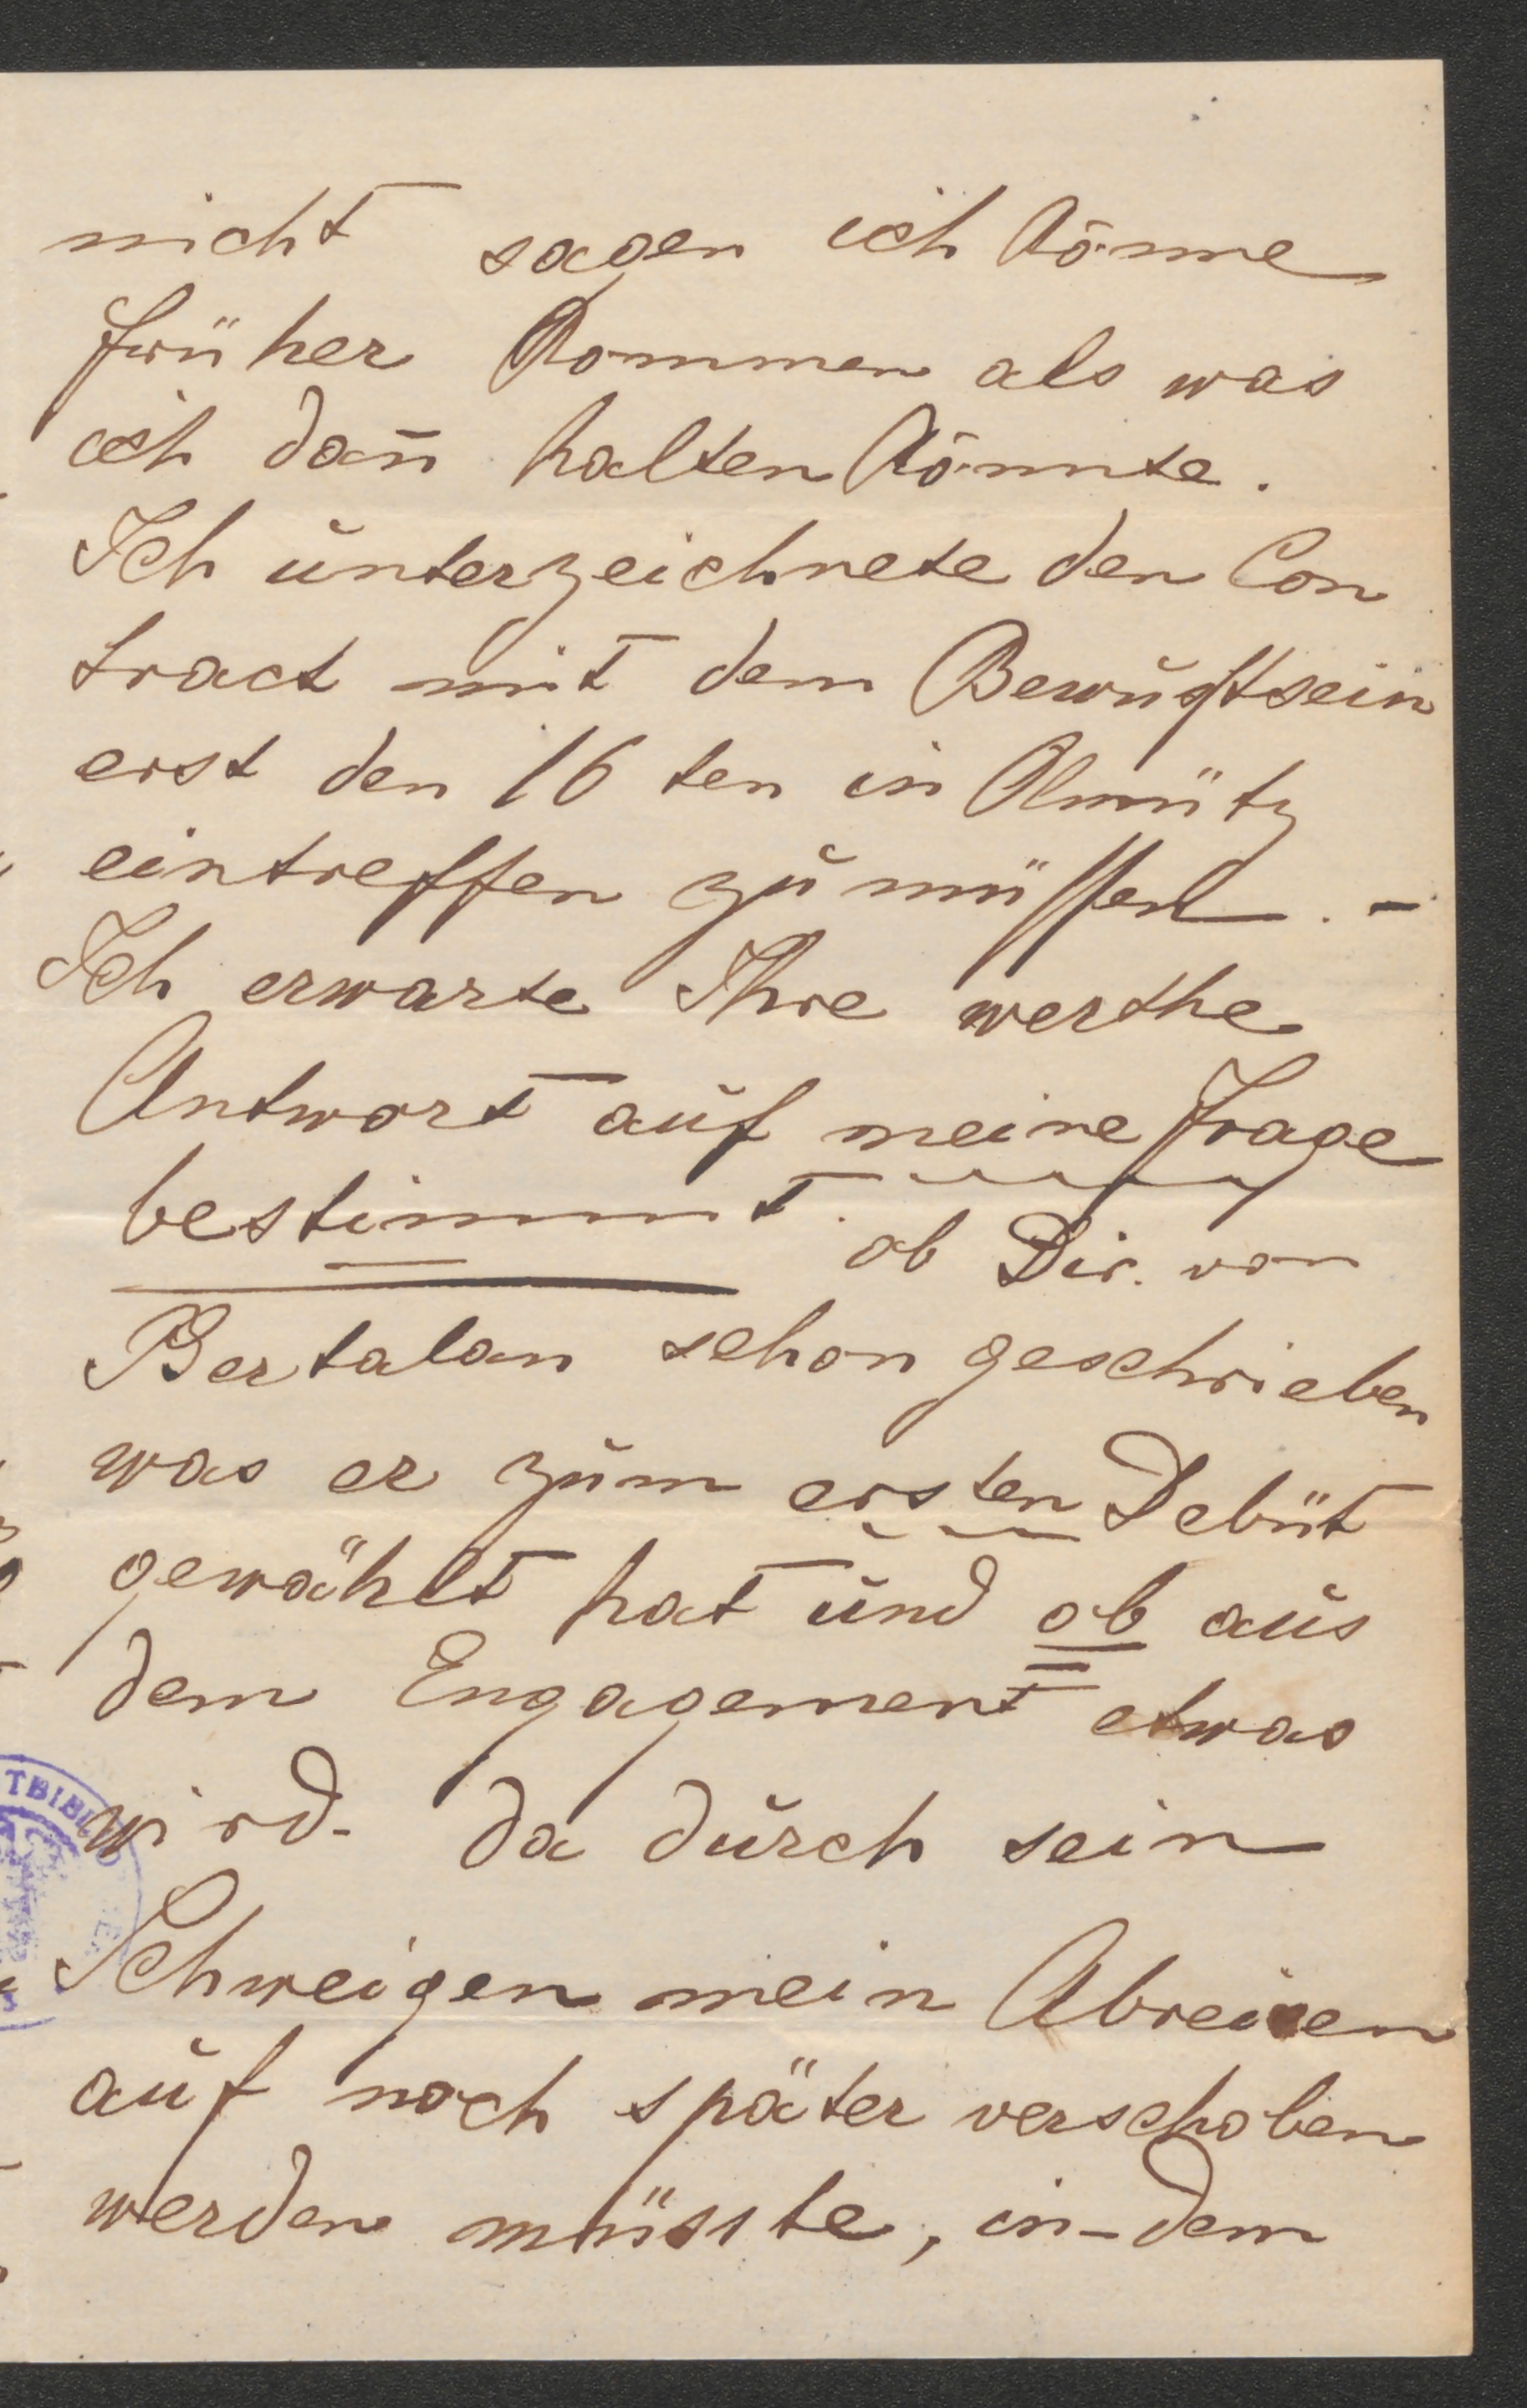 nicht sagen ich könne
früher kommen als was
ich dañ halten könnte.
Ich unterzeichnete den Con
tract mit dem Bewußtsein
erst den 16 ten in Olmütz
eintreffen zu müssen. -
Ich erwarte Ihre werthe
Antwort auf meine Frage
bestimmt. ob Dir. von
Bertalan schon geschrieben
was er zum ersten Debüt
gewählt hat und ob aus
dem Engagement etwas
wird. da durch sein
Schweigen mein Abreisen
auf noch später verschoben
werden müsste, in-dem